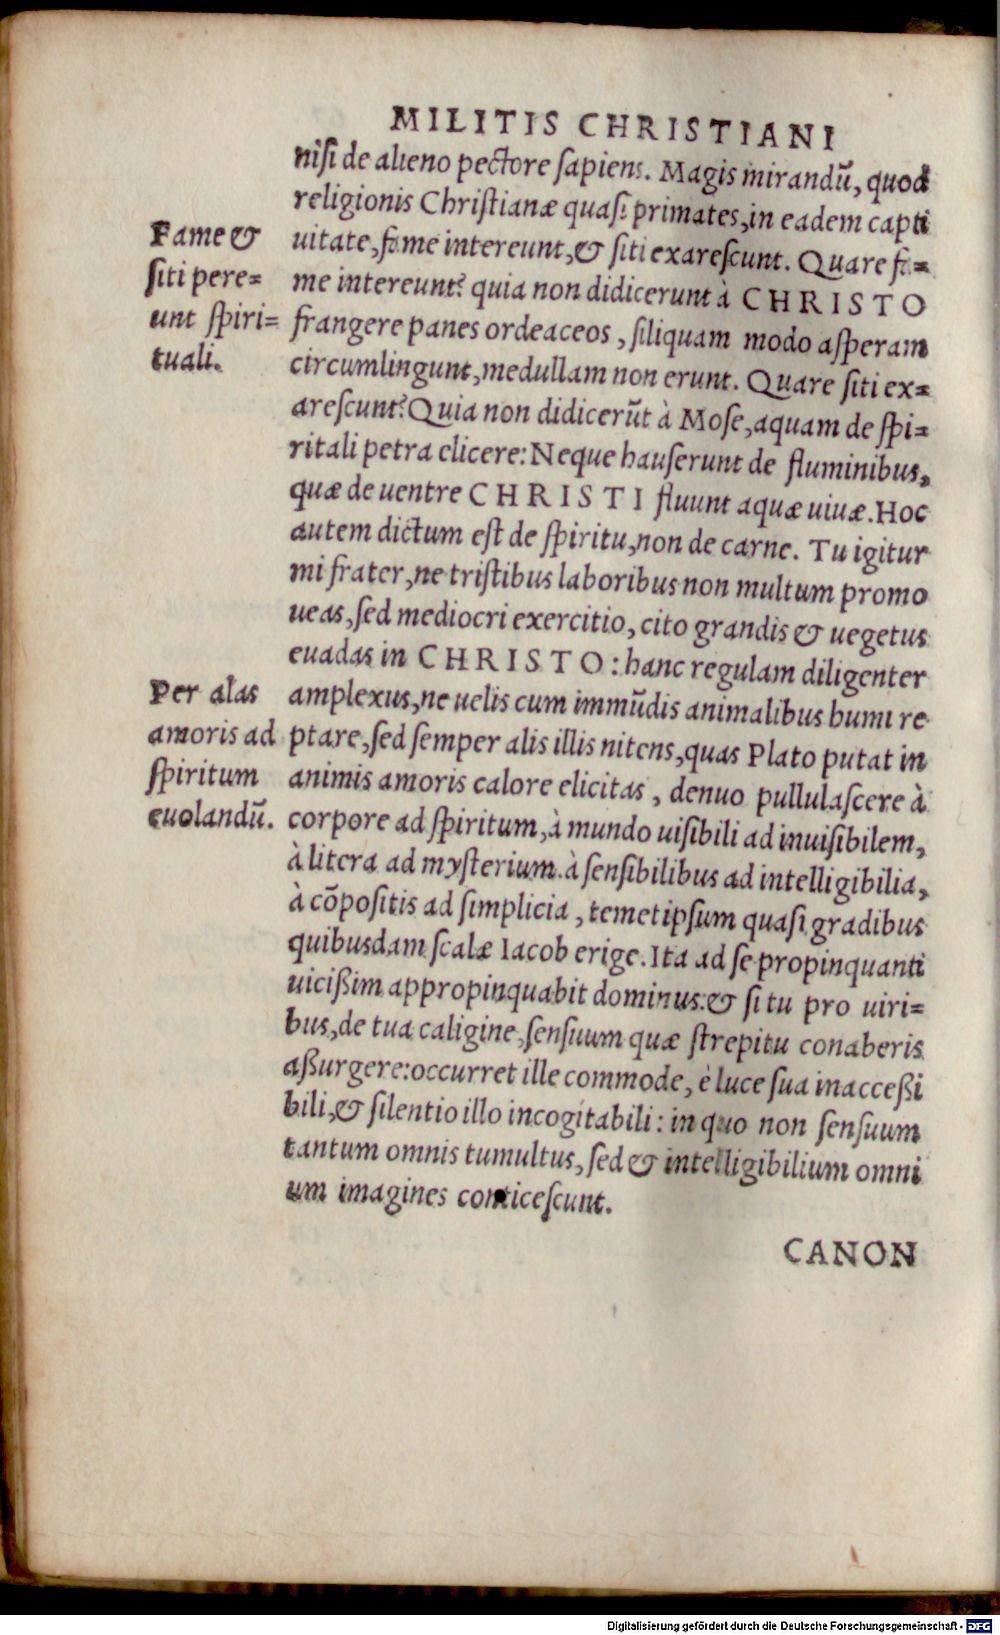 MILITIS CHRISTIANI
niſi de alieno pectore ſapiens. Magis mirandũ, quod
religionis Chriſtianæ quaſi primates, in eadem capti
uitate, fame intereunt, & ſiti exareſcunt. Quare fa=
me intereunt? quia non didicerunt à CHRISTO
frangere panes ordeaceos, ſiliquam modo aſperam
circumlingunt, medullam non erunt. Quare ſiti ex=
areſcunt? Quia non didicerũt à Moſe, aquam de ſpi=
ritali petra elicere: Neque hauſerunt de fluminibus,
quæ de uentre CHRISTI fluunt aquæ uiuæ. Hoc
autem dictum eſt de ſpiritu, non de carne. Tu igitur
mi frater, ne triſtibus laboribus non multum promo
ueas, ſed mediocri exercitio, cito grandis & uegetus
euadas in CHRISTO: hanc regulam diligenter
amplexus, ne uelis cum immũdis animalibus humi re
ptare, ſed ſemper alis illis nitens, quas Plato putat in
animis amoris calore elicitas, denuo pullulaſcere à
corpore ad ſpiritum, à mundo uiſibili ad inuiſibilem,
à litera ad myſterium. à ſenſibilibus ad intelligibilia,
à cõpoſitis ad ſimplicia, temetipſum quaſi gradibus
quibusdam ſcalæ Iacob erige. Ita ad ſe propinquanti
uicißim appropinquabit dominus: & ſi tu pro uiri=
bus, de tua caligine, ſenſuum quæ ſtrepitu conaberis
aßurgere: occurret ille commode, è luce ſua inacceßi
bili, & ſilentio illo incogitabili: in quo non ſenſuum
tantum omnis tumultus, ſed & intelligibilium omni
um imagines conticeſcunt.
CANON
Fame &
ſiti pere=
unt ſpiri=
tuali.
Per alas
amoris ad
ſpiritum
euolandũ.
Digitalisierung gefördert durch die Deutsche Forschungsgemeinschaft - DFG